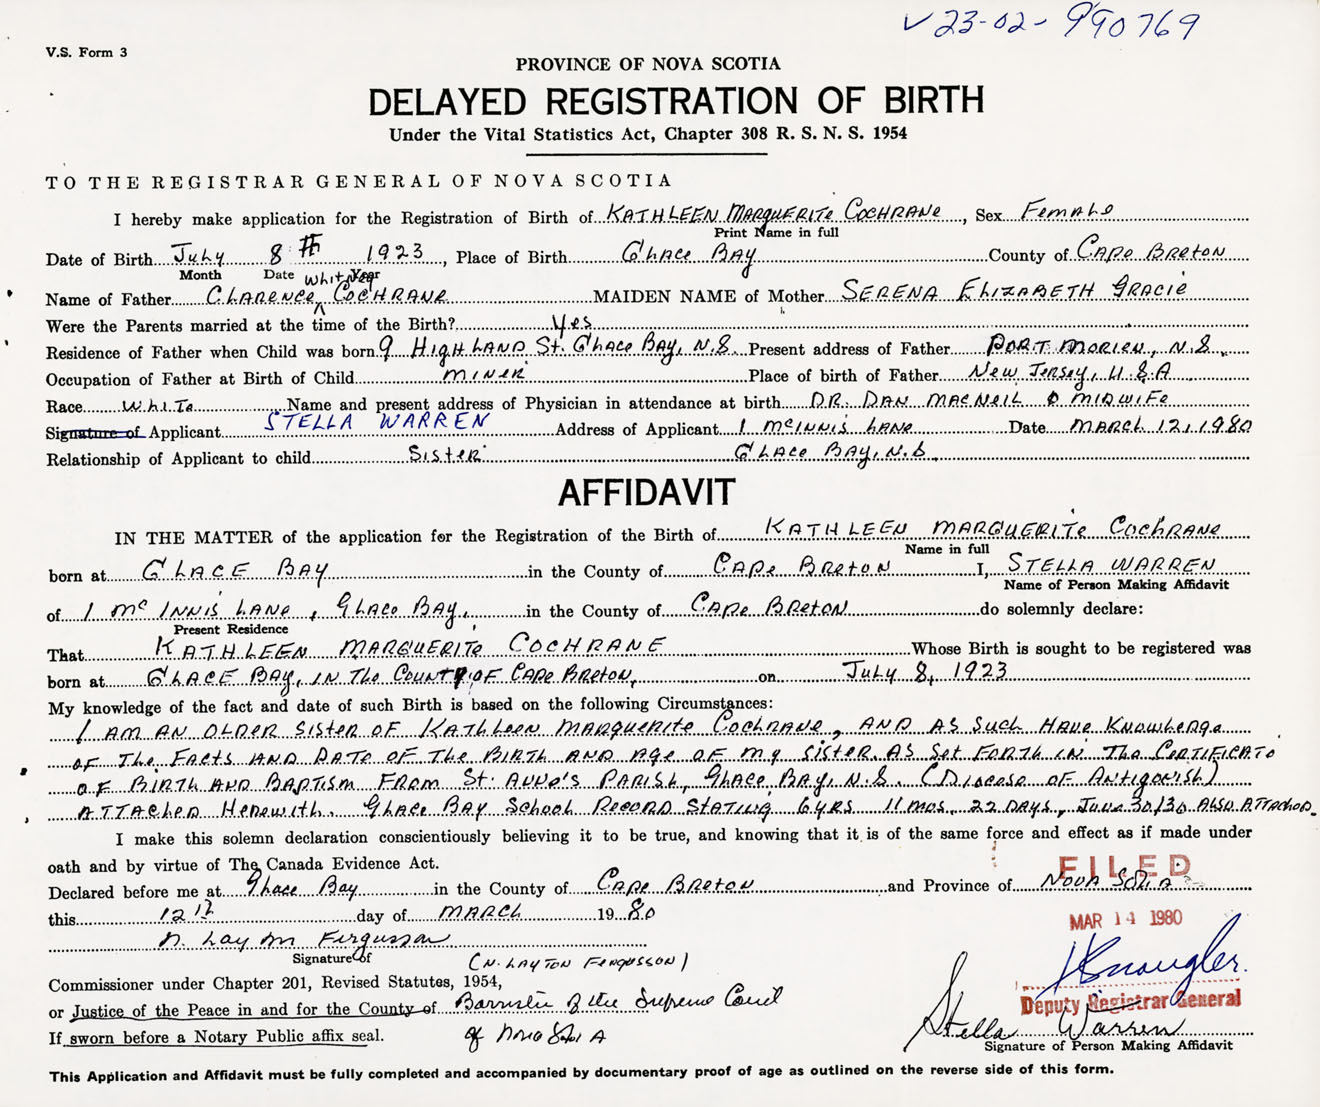 V 23-02-990769
V.S. Form 3
PROVINCE OF NOVA SCOTIA
DELAYED REGISTRATION OF BIRTH
Under the Vital Statistics Act, Chapter 308 R. S. N. S. 1954
TO THE REGISTRAR GENERAL OF NOVA SCOTIA
I hereby make application for the Registration of Birth of KATHLEEN MARGUERITE COCHRANE, Sex Female
Print Name in full
Date of Birth July 8th 1923, Place of Birth GLACE BAY County of CAPE BRETON
Month Date Year
Whitney
Name of Father CLARENCE COCHRANE MAIDEN NAME of Mother SERENA ELIZABETH GRACIE
Were the Parents married at the time of the Birth? Yes
Residence of Father when Child was born 9 HIGHLAND St. GLACE BAY, N.S. Present address of Father PORT MORIEN, N.S.
Occupation of Father at Birth of Child MINER Place of birth of Father New Jersey, U.S.A
Race White Name and present address of Physician in attendance at birth DR. DAN MACNEIL & MIDWIFE
Signature of Applicant STELLA WARREN Address of Applicant 1 McINNIS LANE Date MARCH 12, 1980
Relationship of Applicant to child Sister GLACE BAY, N.S.
AFFIDAVIT
IN THE MATTER of the application for the Registration of the Birth of KATHLEEN MARGUERITE COCHRANE
Name in full
born at GLACE BAY in the County of CAPE BRETON I, STELLA WARREN
Name of Person Making Affidavit
of 1 McINNIS LANE, GLACE BAY, in the County of CAPE BRETON do solemnly declare:
Present Residence
That KATHLEEN MARGUERITE COCHRANE Whose Birth is sought to be registered was
born at GLACE BAY, IN THE COUNTY OF CAPE BRETON, on July 8, 1923
My knowledge of the fact and date of such Birth is based on the following Circumstances:
I AM AN OLDER SISTER OF KATHLEEN MARGUERITE COCHRANE, AND AS SUCH HAVE KNOWLEDGE
OF THE FACTS AND DATE OF THE BIRTH AND AGE OF MY SISTER AS SET FORTH IN THE CERTIFICATE
OF BIRTH AND BAPTISM FROM ST. ANNE'S PARISH, GLACE BAY, N.S. (DIOCESE OF ANTIGONISH)
ATTACHED HEREWITH. GLACE BAY SCHOOL RECORD STATING 6 YRS 11 MOS. 22 DAYS, June 30/30 ALSO ATTACHED.
I make this solemn declaration conscientiously believing it to be true, and knowing that it is of the same force and effect as if made under
oath and by virtue of The Canada Evidence Act.
FILED
Declared before me at Glace Bay in the County of CAPE BRETON and Province of NOVA SCOTIA
this 12th day of MARCH 1980
MAR 14 1980
N. Layton Fergusson
Signature of (N. LAYTON FERGUSSON)
Commissioner under Chapter 201, Revised Statutes, 1954,
or Justice of the Peace in and for the County of Barrister of the Supreme Court
Deputy Registrar General
If sworn before a Notary Public affix seal. of Nova Scotia
Stella Warren
Signature of Person Making Affidavit
This Application and Affidavit must be fully completed and accompanied by documentary proof of age as outlined on the reverse side of this form.